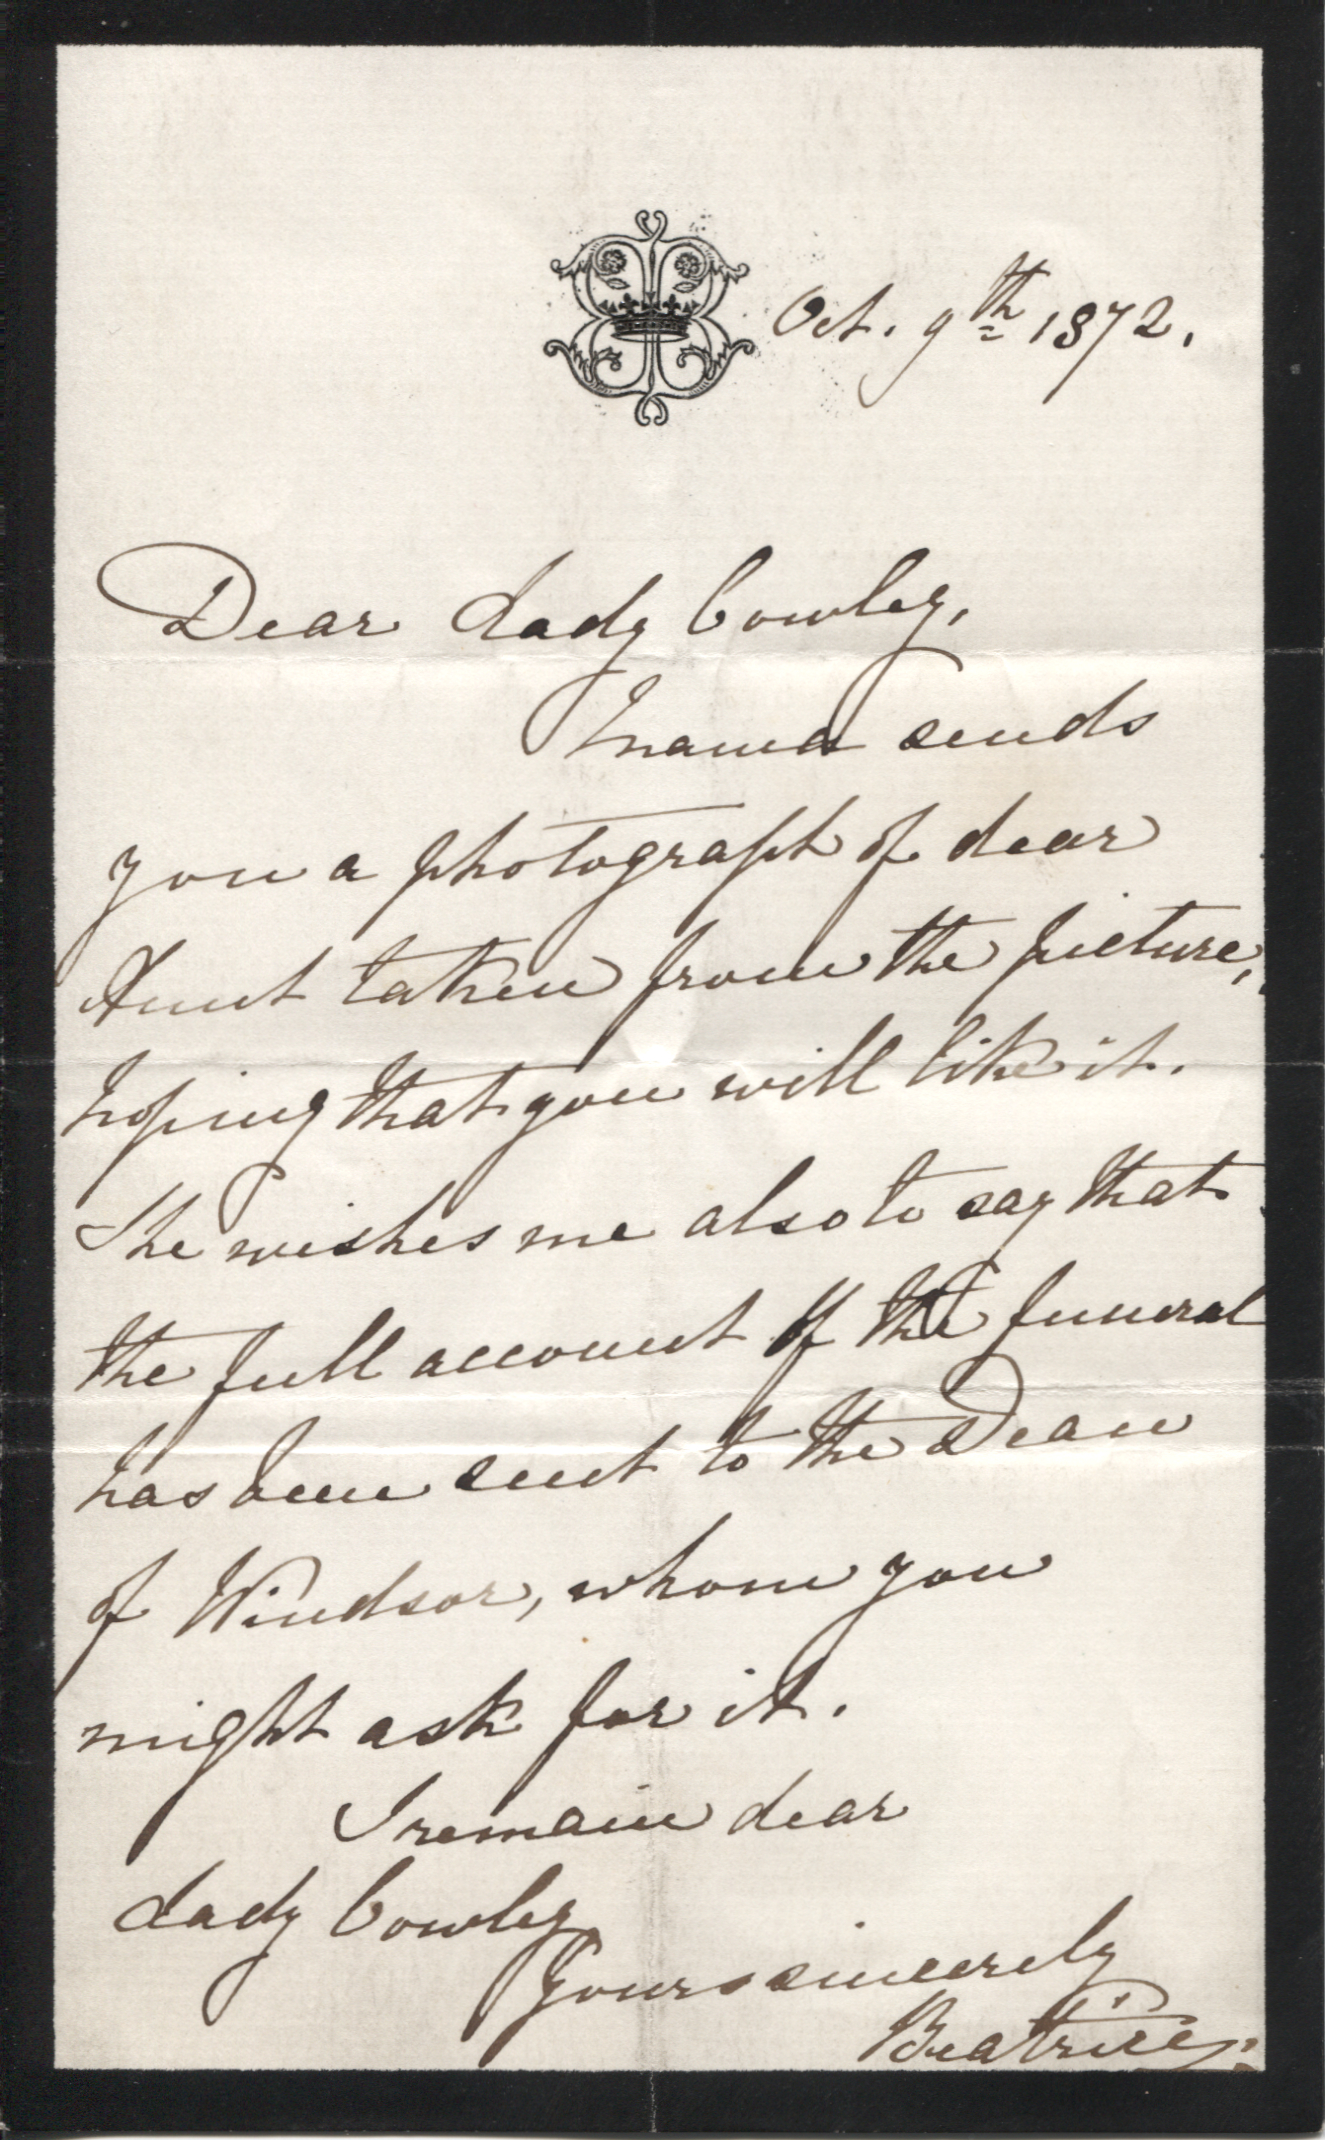 Oct. 9th 1872.
Dear Lady Cowley,
Mama sends
you a photograph of dear
Aunt taken from the picture,
hoping that you will like it.
She wishes me also to say that
the full account of the funeral
has been sent to the Dean
of Windsor, whom you
might ask for it.
I remain dear
Lady Cowley
Yours sincerely
Beatrice.